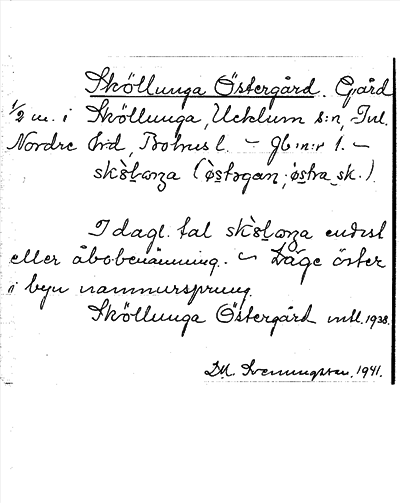 Sköllunga Östergård. Gård
1/2 m. i Sköllunga, Ucklum s:n, Inl.
Nordre h:d, Bohus l. - Gb:n:r 1. -
skò̀lˌoŋa (ò̀stəgan, ø̀stra sk.).
I dagl. tal skò̀lˌoŋa endast
eller åbobenämning. - Läge öster
i byn namnursprung.
Sköllunga Östergård mtl. 1938.
D.A. Svenningsson, 1941.